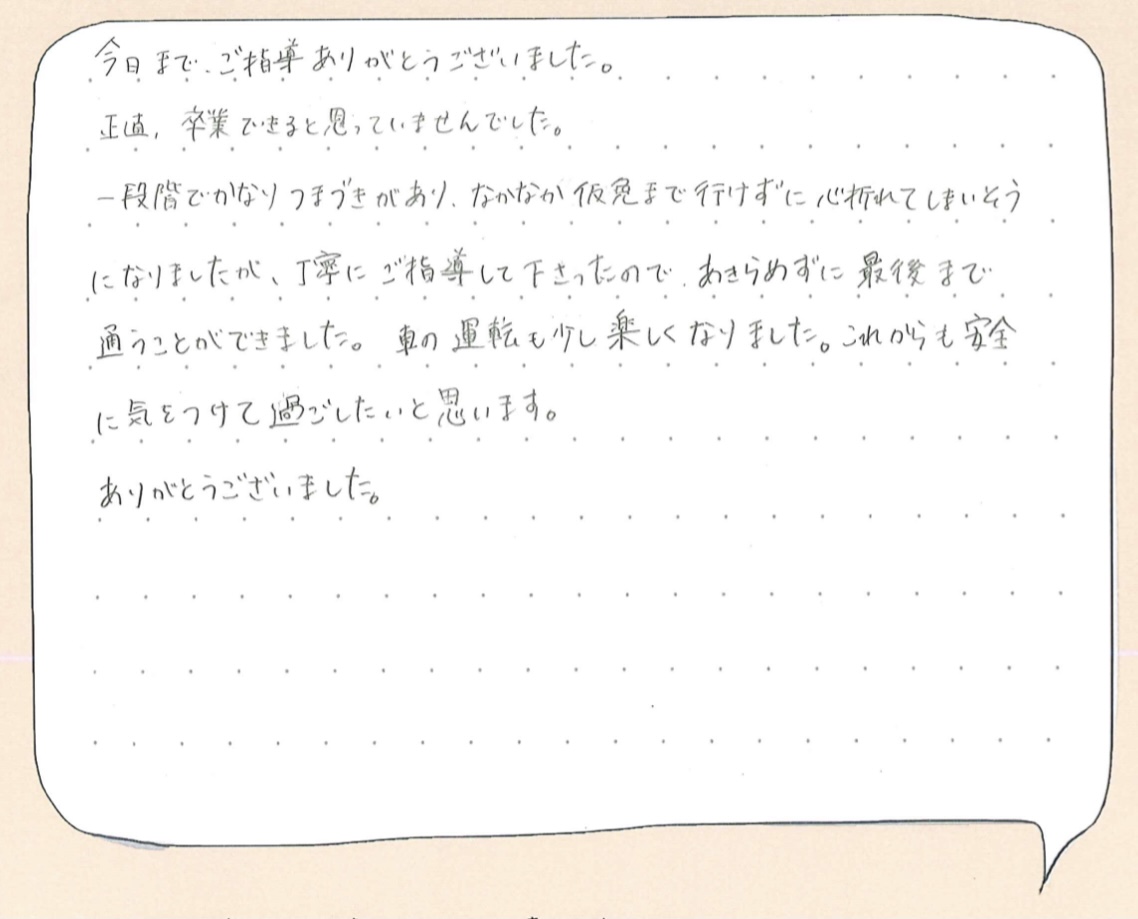 今日まで、ご指導ありがとうございました。
正直、卒業できると思っていませんでした。
一段階でかなりつまづきがあり、なかなか仮免まで行けずに心折れてしまいそう
になりましたが、丁寧にご指導して下さったので、あきらめずに最後まで
通うことができました。車の運転も少し楽しくなりました。これからも安全
に気をつけて過ごしたいと思います。
ありがとうございました。